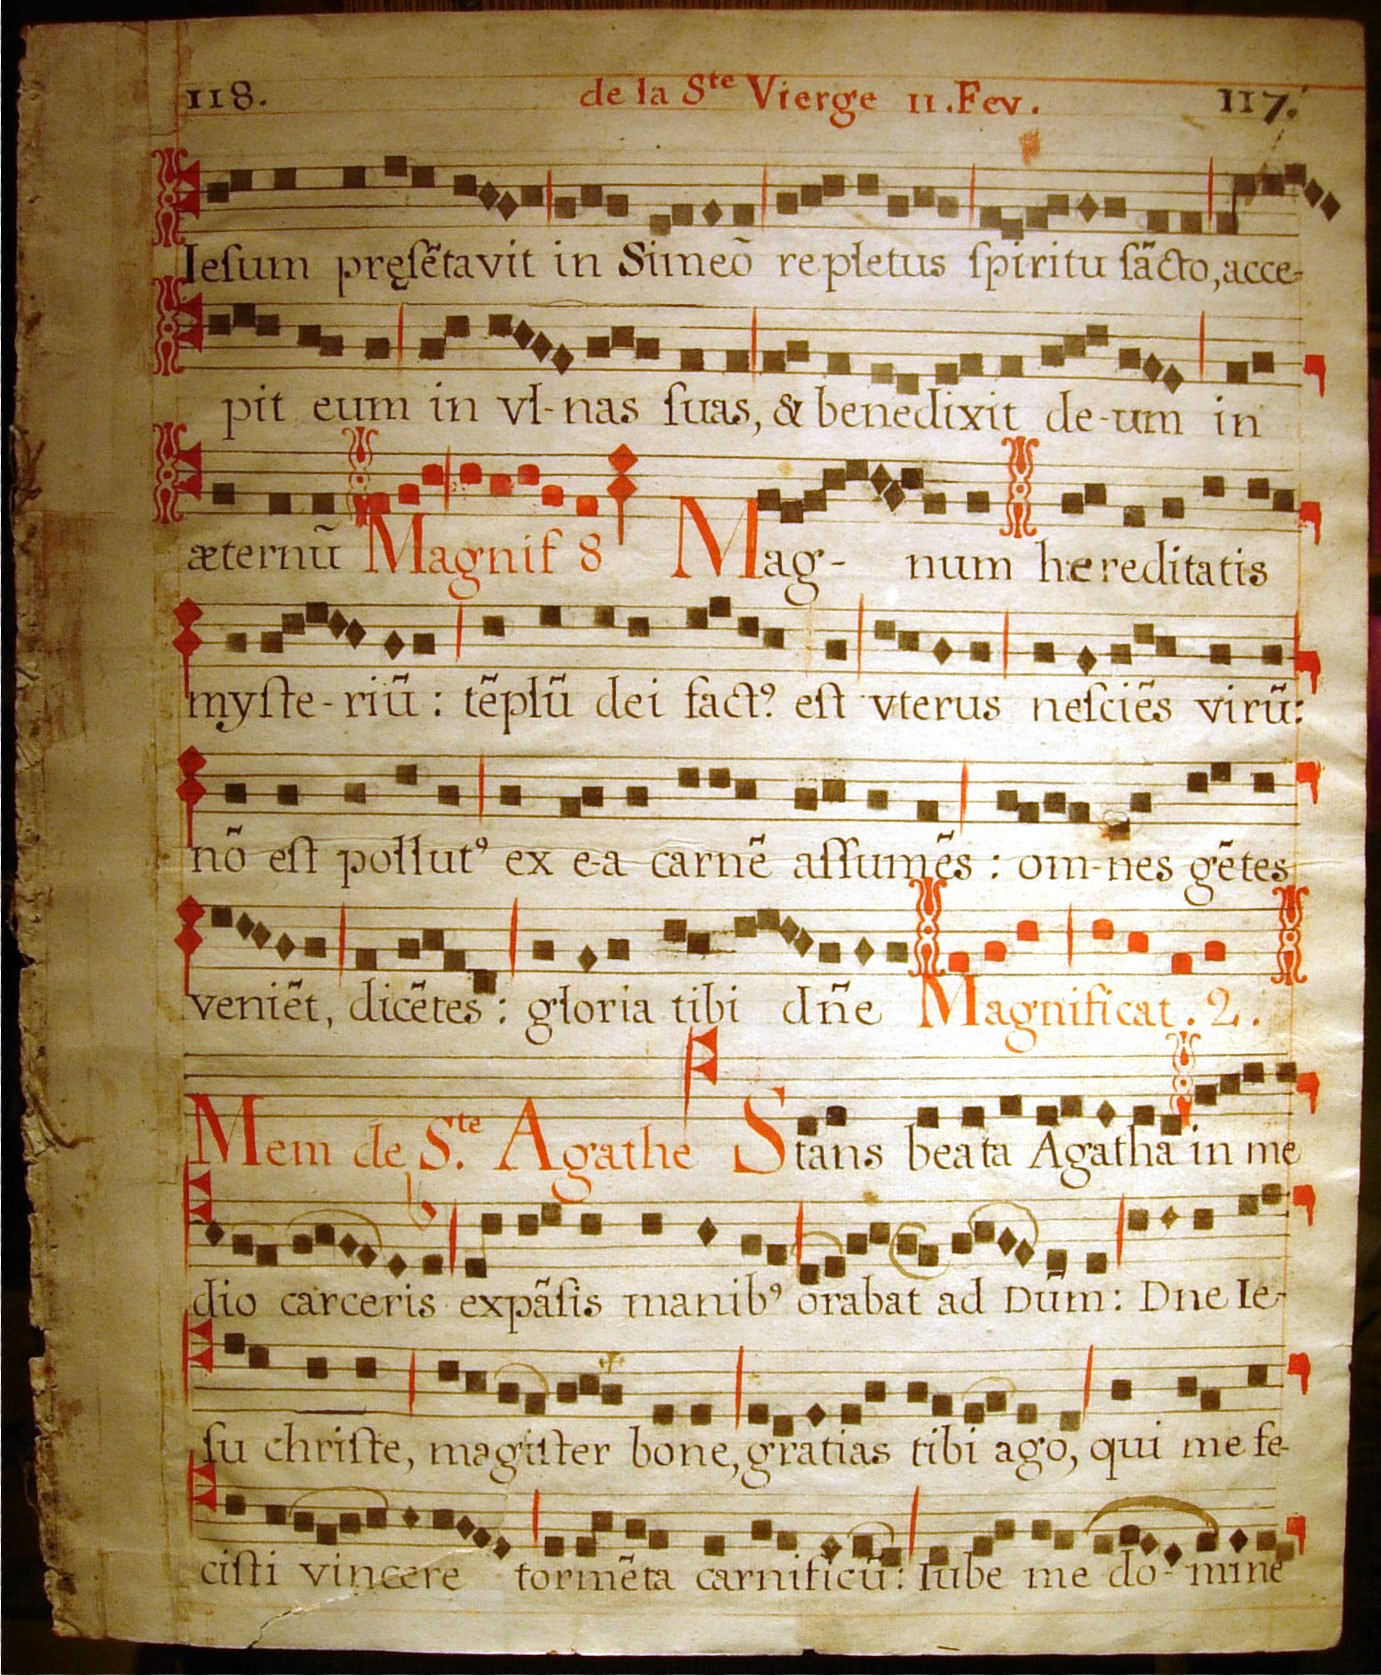 118. de la Ste Vierge 11.Fev. 117.
Iesum pręsẽtavit in Simeõ repletus spiritu sãcto, acce-
pit eum in vl-nas suas, & benedixit de-um in
æternũ Magnif 8 Mag- num hereditatis
myste-riũ: tẽplũ dei fact⁹ est vterus nesciẽs virũ:
nõ est pollut⁹ ex e-a carnẽ assumẽs: om-nes gẽtes
veniẽt, dicẽtes: gloria tibi dñe Magnificat. 2.
Mem de Ste. Agathe Stans beata Agatha in me
dio carceris expãsis manib⁹ orabat ad Dũm: Dne Ie-
su christe, magister bone, gratias tibi ago, qui me fe-
cisti vincere tormẽta carnificũ: Iube me do-mine